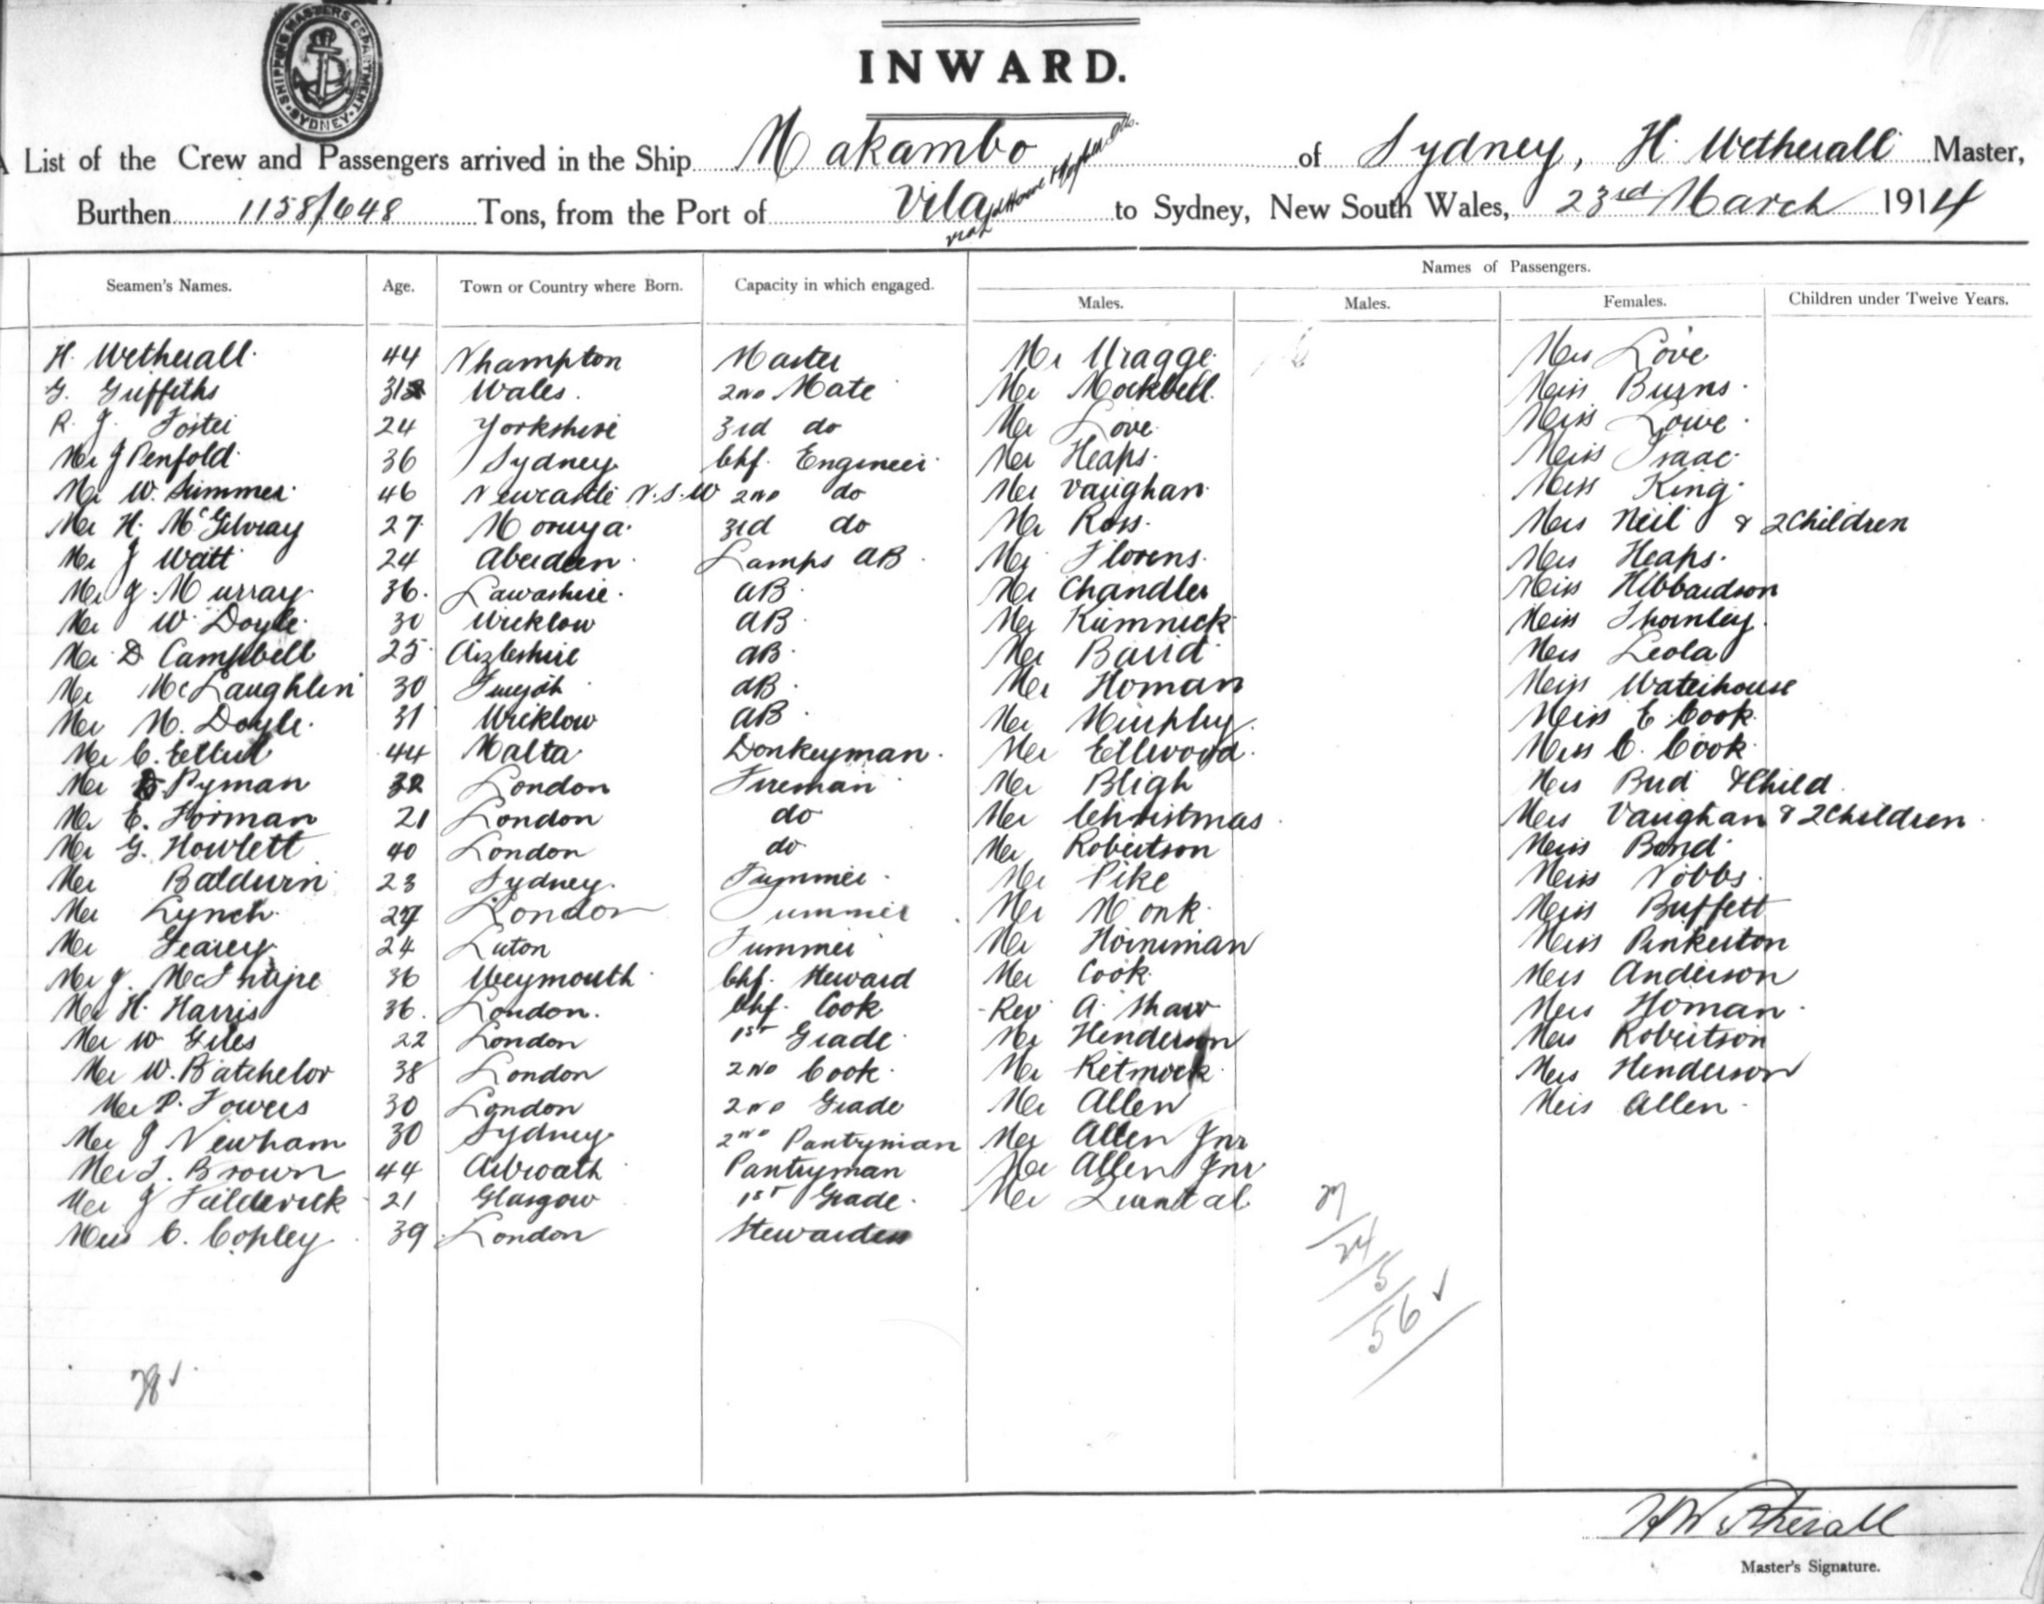 SHIPPING MASTERS DEPARTMENT SYDNEY
INWARD.
A List of the Crew and Passengers arrived in the Ship Makambo of Sydney, H. Wetherall Master,
Burthen 1158/648 Tons, from the Port of Vila via Ld Howe & to Sydney, New South Wales, 23rd March 1914
Names of Passengers.
Seamen's Names. Age. Town or Country where Born. Capacity in which engaged. Males. Males. Females. Children under Twelve Years.
H. Wetherall 44 Nhampton Master Mr Wragge Mrs Love
G. Griffiths 31 Wales. 2nd Mate Mr Mockbell Miss Burns
R. J. Foster 24 Yorkshire 3rd do Mr Love Miss Lowe
Mr J Penfold 36 Sydney Chf. Engineer Mr Heaps Miss Isaac
Mr W. Summer 46 Newcastle N.S.W 2nd do Mr Vaughan Miss King
Mr H. McGilvray 27 Moruya 3rd do Mr Ross Mrs Neil & 2 Children
Mr J Watt 24 Aberdeen Lamps AB Mr Florens Mrs Heaps
Mr J. Murray 36 AB Mr Chandler Miss Hibbardson
Mr W. Doyle 30 Wicklow AB Mr Kumnick Miss Thornley
Mr D Campbell 25 AB Mr Baird Mrs Leola
Mr McLaughlin 30 AB Mr Homan Miss Waterhouse
Mr M. Doyle 31 Wicklow AB Mr Murphy Miss E Cook
Mr C. Ellul 44 Malta Donkeyman Mr Ellwood Miss C. Cook
Mr Pyman 32 London Fireman Mr Bligh Mrs Bud & Child
Mr E. Forman 21 London do Mr Christmas Mrs Vaughan & 2 Children
Mr G. Howlett 40 London do Mr Robertson Miss Bond
Mr Baldwin 23 Sydney Trimmer Mr Pike Miss Nobbs
Mr Lynch 27 London Trimmer Mr Monk Miss Buffett
Mr Gearey 24 Luton Trimmer Mr Horniman Miss Pinkerton
Mr J. McIntyre 36 Weymouth Chf. Steward Mr Cook Mrs Anderson
Mr H. Harris 36 London. Chf. Cook Rev A. Shaw Mrs Homan
Mr W Giles 22 London 1st Grade Mr Henderson Mrs Robertson
Mr W. Batchelor 38 London 2nd Cook Mr Mrs Henderson
Mr P. Towers 30 London 2nd Grade Mr Allen Mrs Allen
Mr J Newham 30 Sydney 2nd Pantryman Mr Allen Jnr
Mr T. Brown 44 Arbroath Pantryman Mr Allen Jnr
Mr J 21 Glasgow 1st Grade Mr Quintal
Mrs C. Copley 39 London Stewardess
27
24
5
56
28
H Wetherall
Master's Signature.